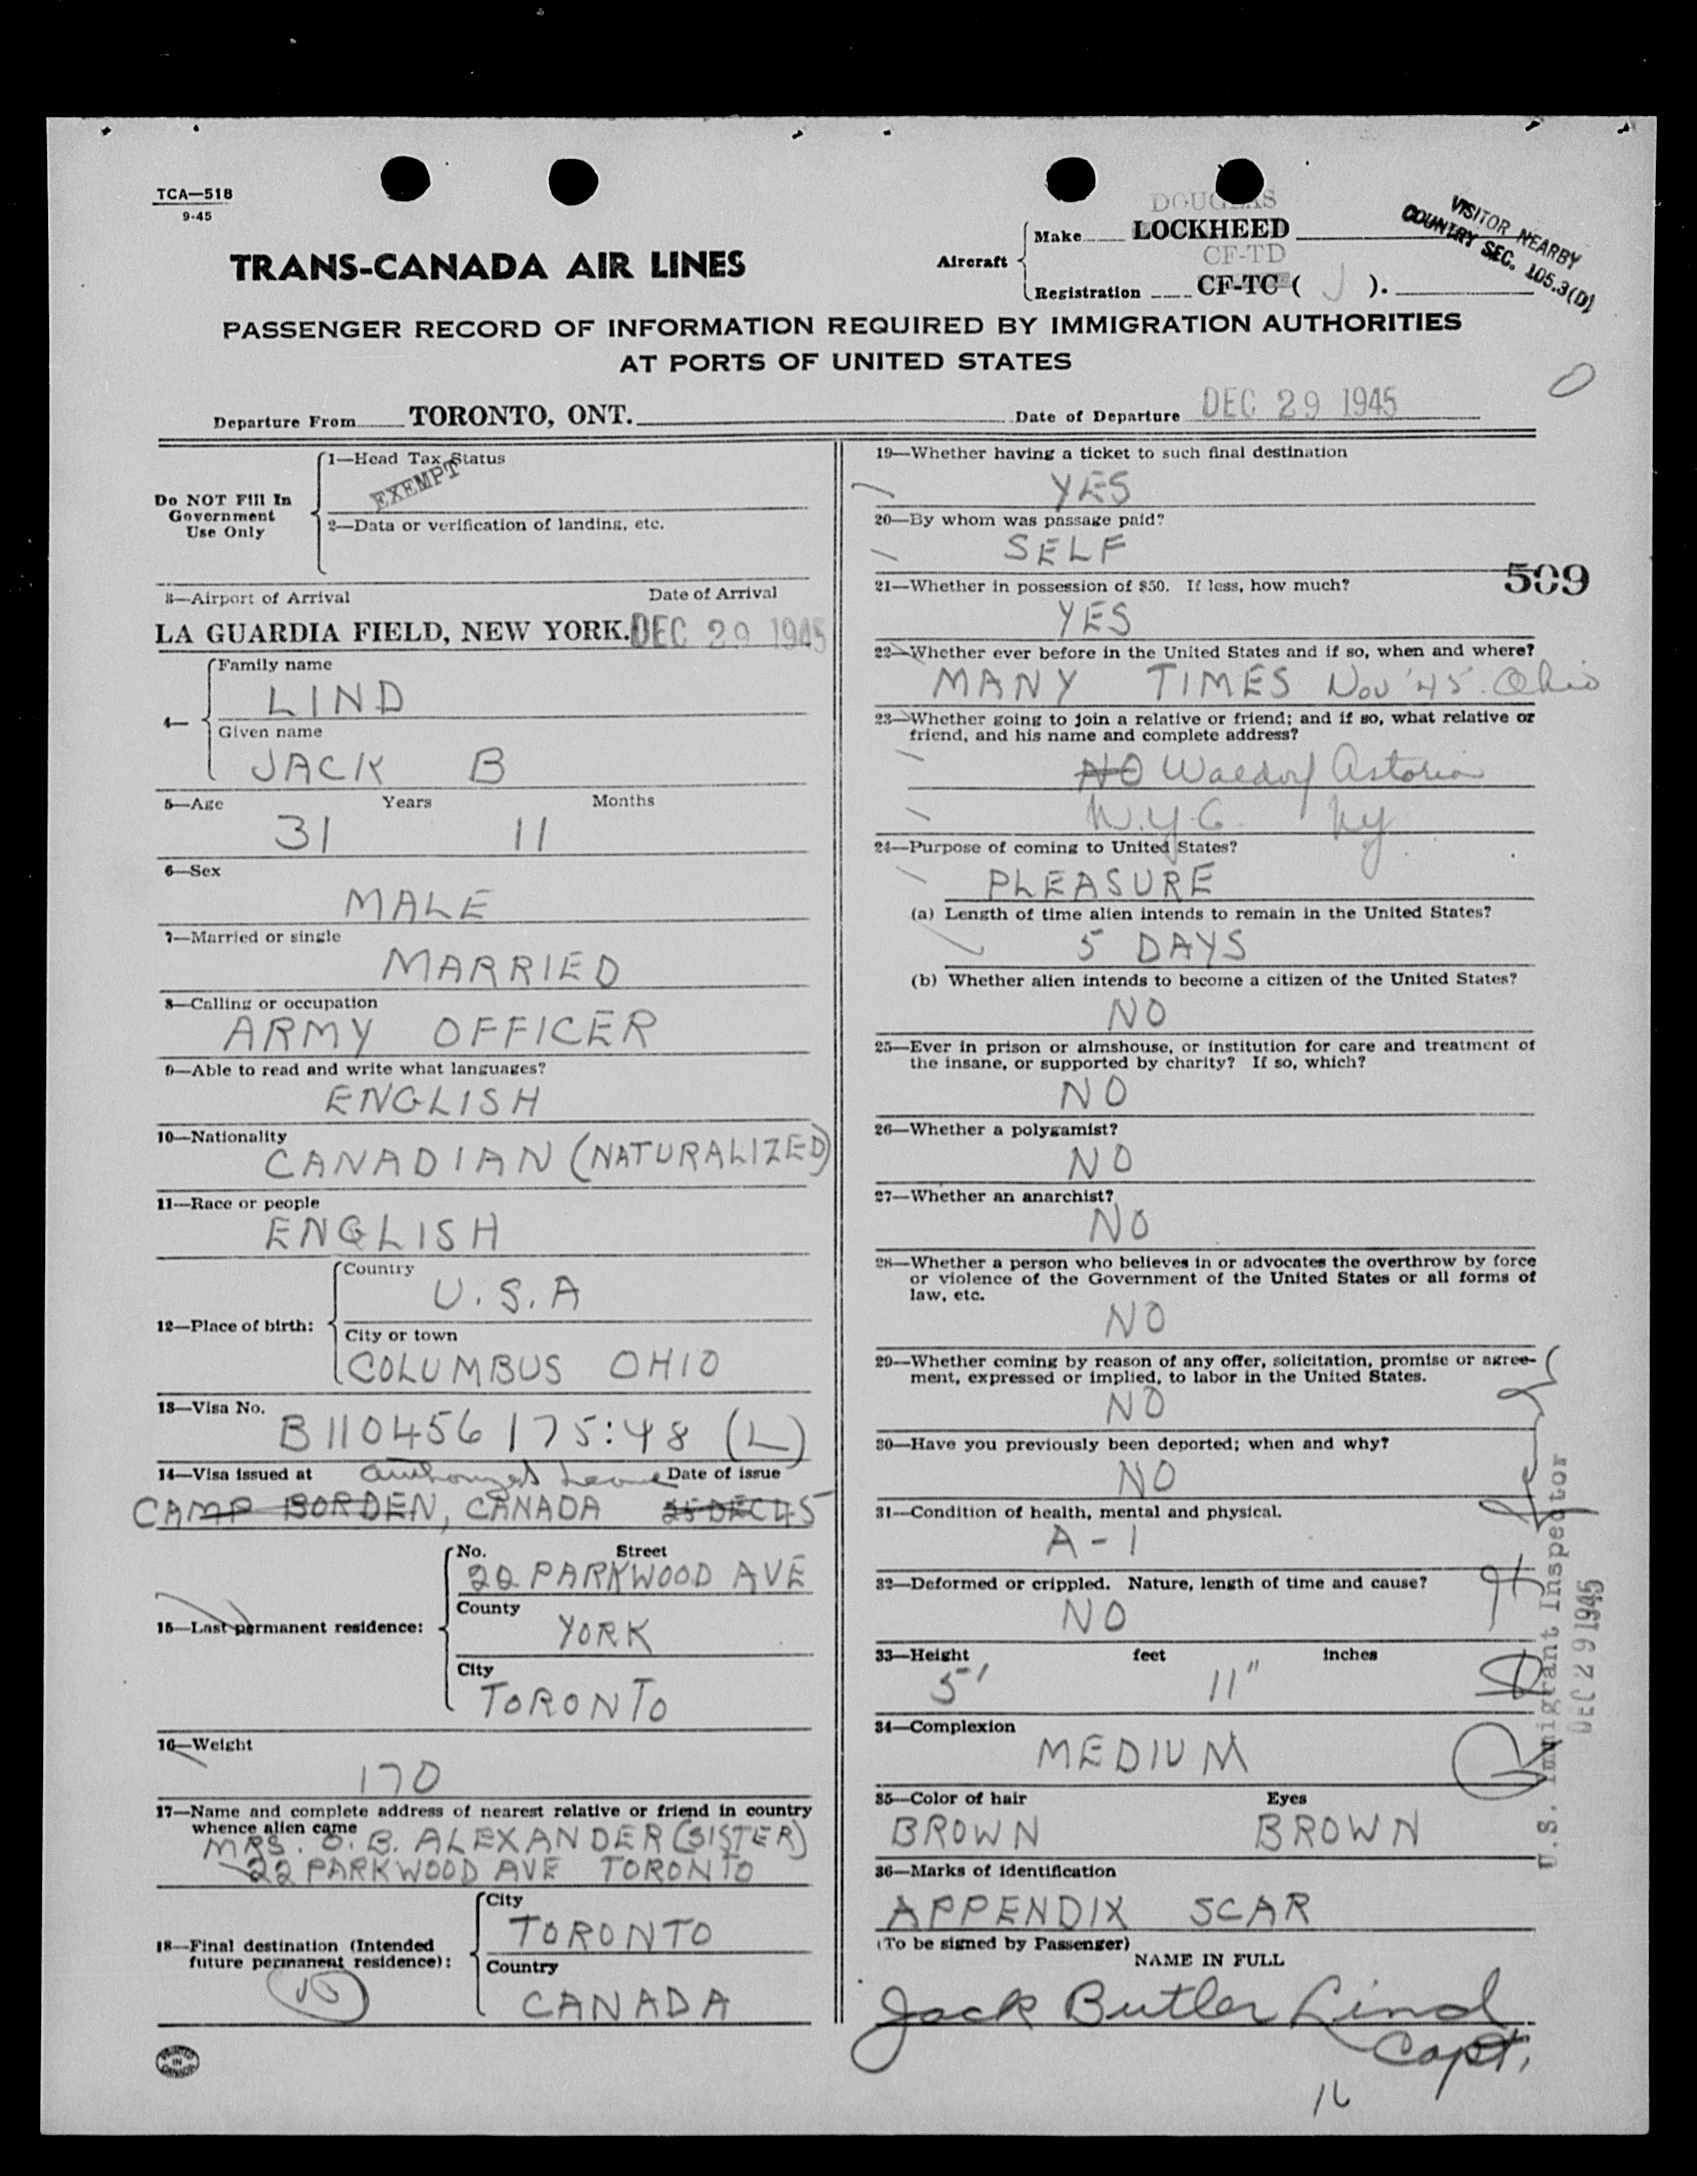 TCA—518
9-45
TRANS-CANADA AIR LINES
DOUGLAS
Aircraft
Make LOCKHEED
CF-TD
Registration CF-TC ( J ).
VISITOR NEARBY
COUNTRY SEC. 105.3(D)
PASSENGER RECORD OF INFORMATION REQUIRED BY IMMIGRATION AUTHORITIES
AT PORTS OF UNITED STATES
0
Departure From TORONTO, ONT. Date of Departure DEC 29 1945
Do NOT Fill In
Government
Use Only
1—Head Tax Status
EXEMPT
2—Data or verification of landing, etc.
3—Airport of Arrival Date of Arrival
LA GUARDIA FIELD, NEW YORK. DEC 29 1945
4—
Family name
LIND
Given name
JACK B
5—Age Years Months
31 11
6—Sex
MALE
7—Married or single
MARRIED
8—Calling or occupation
ARMY OFFICER
9—Able to read and write what languages?
ENGLISH
10—Nationality
CANADIAN (NATURALIZED)
11—Race or people
ENGLISH
12—Place of birth:
Country
U.S.A
City or town
COLUMBUS OHIO
13—Visa No.
B110456 175:48 (L)
14—Visa issued at Authorized Leave Date of issue
CAMP BORDEN, CANADA 25 DEC 45
15—Last permanent residence:
No. Street
22 PARKWOOD AVE
County
YORK
City
TORONTO
16—Weight
170
17—Name and complete address of nearest relative or friend in country
whence alien came
MRS. O. B. ALEXANDER (SISTER)
22 PARKWOOD AVE TORONTO
18—Final destination (Intended
future permanent residence):
City
TORONTO
Country
CANADA
PRINTED
IN
CANADA
19—Whether having a ticket to such final destination
YES
20—By whom was passage paid?
SELF
21—Whether in possession of $50. If less, how much?
509
YES
22—Whether ever before in the United States and if so, when and where?
MANY TIMES Nov '45. Ohio
23—Whether going to join a relative or friend; and if so, what relative or
friend, and his name and complete address?
NO Waldorf Astoria
N.Y.C. NY
24—Purpose of coming to United States?
PLEASURE
(a) Length of time alien intends to remain in the United States?
5 DAYS
(b) Whether alien intends to become a citizen of the United States?
NO
25—Ever in prison or almshouse, or institution for care and treatment of
the insane, or supported by charity? If so, which?
NO
26—Whether a polygamist?
NO
27—Whether an anarchist?
NO
28—Whether a person who believes in or advocates the overthrow by force
or violence of the Government of the United States or all forms of
law, etc.
NO
29—Whether coming by reason of any offer, solicitation, promise or agree-
ment, expressed or implied, to labor in the United States.
NO
30—Have you previously been deported; when and why?
NO
31—Condition of health, mental and physical.
A-1
32—Deformed or crippled. Nature, length of time and cause?
NO
33—Height feet inches
5' 11"
34—Complexion
MEDIUM
35—Color of hair Eyes
BROWN BROWN
36—Marks of identification
APPENDIX SCAR
(To be signed by Passenger)
NAME IN FULL
Jack Butler Lind
Capt.
16
U.S. Immigrant Inspector
DEC 29 1945